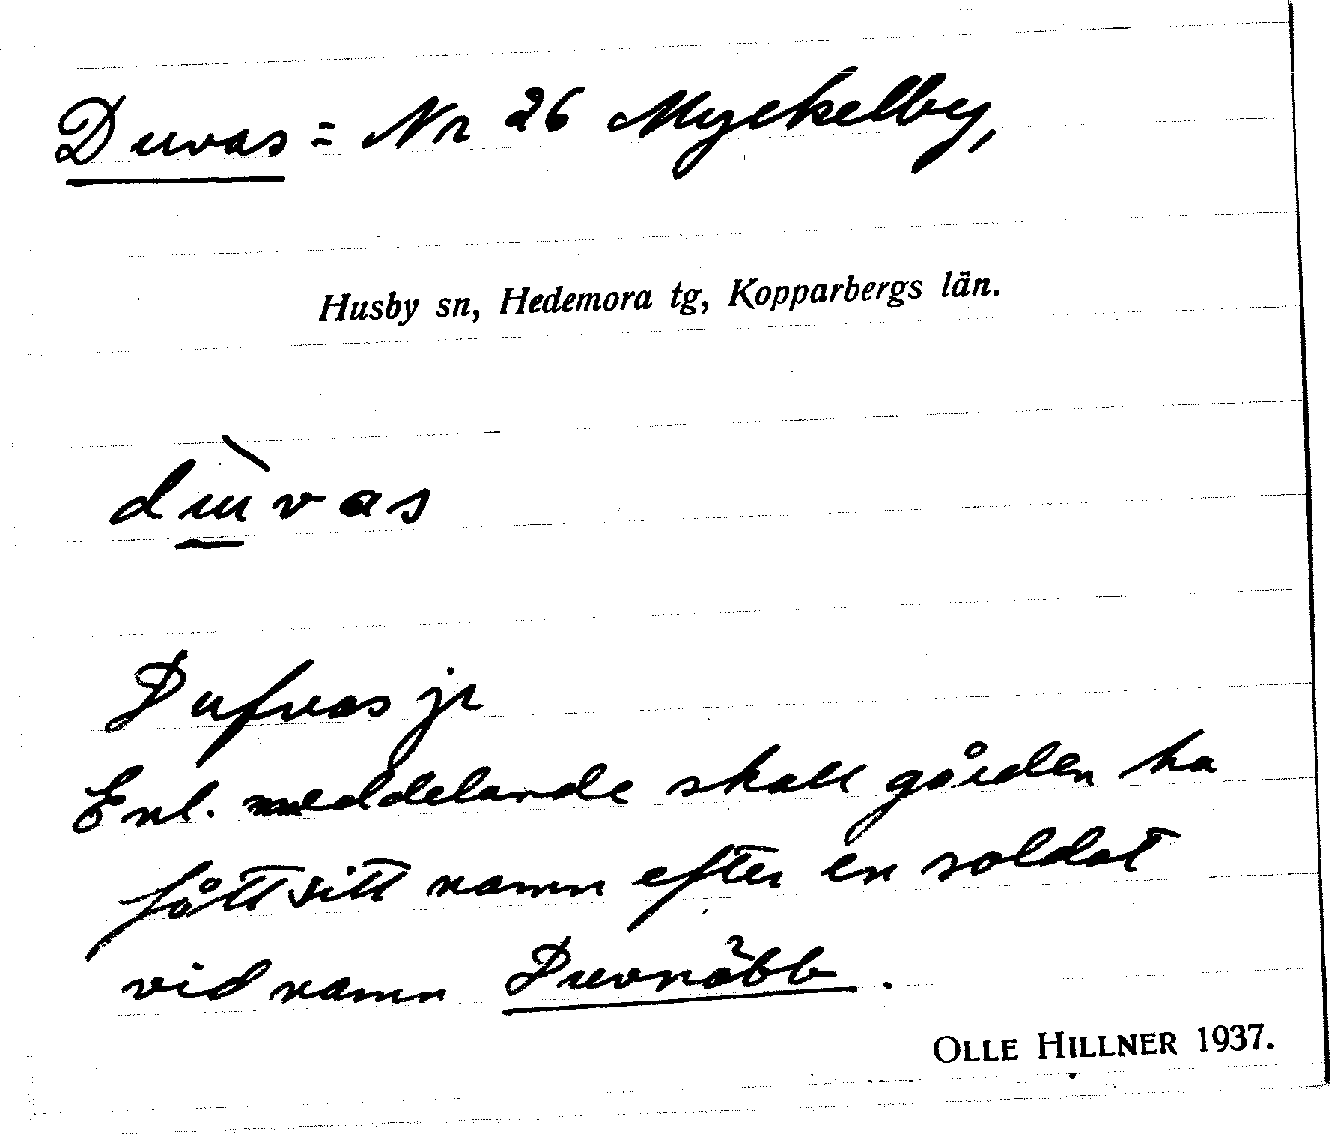 Duvas = Nr 26 Myckelby,
Husby sn, Hedemora tg, Kopparbergs län.
dùvas
Dufvas jr
Enl. meddelande skall gården ha
fått sitt namn efter en soldat
vid namn Duvnäbb.
OLLE HILLNER 1937.